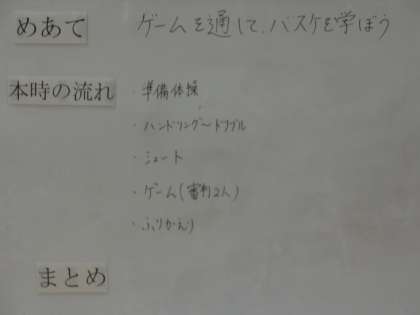 めあて ゲームを通して、バスケを学ぼう
本時の流れ ・準備体操
・ハンドリング〜ドリブル
・シュート
・ゲーム(審判2人)
・ふりかえり
まとめ